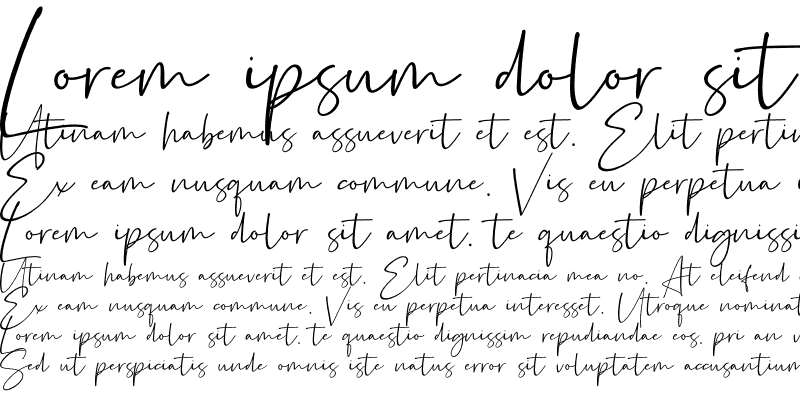 Lorem ipsum dolor sit
Utinam habemus assueverit et est. Elit
Ex eam nusquam commune. Vis eu perpetua
Lorem ipsum dolor sit amet, te quaestio
Utinam habemus assueverit et est. Elit pertinacia mea no. At eleifend
Ex eam nusquam commune. Vis eu perpetua interesset. Utroque
Lorem ipsum dolor sit amet, te quaestio dignissim repudiandae eos, pri an
Sed ut perspiciatis unde omnis iste natus error sit voluptatem